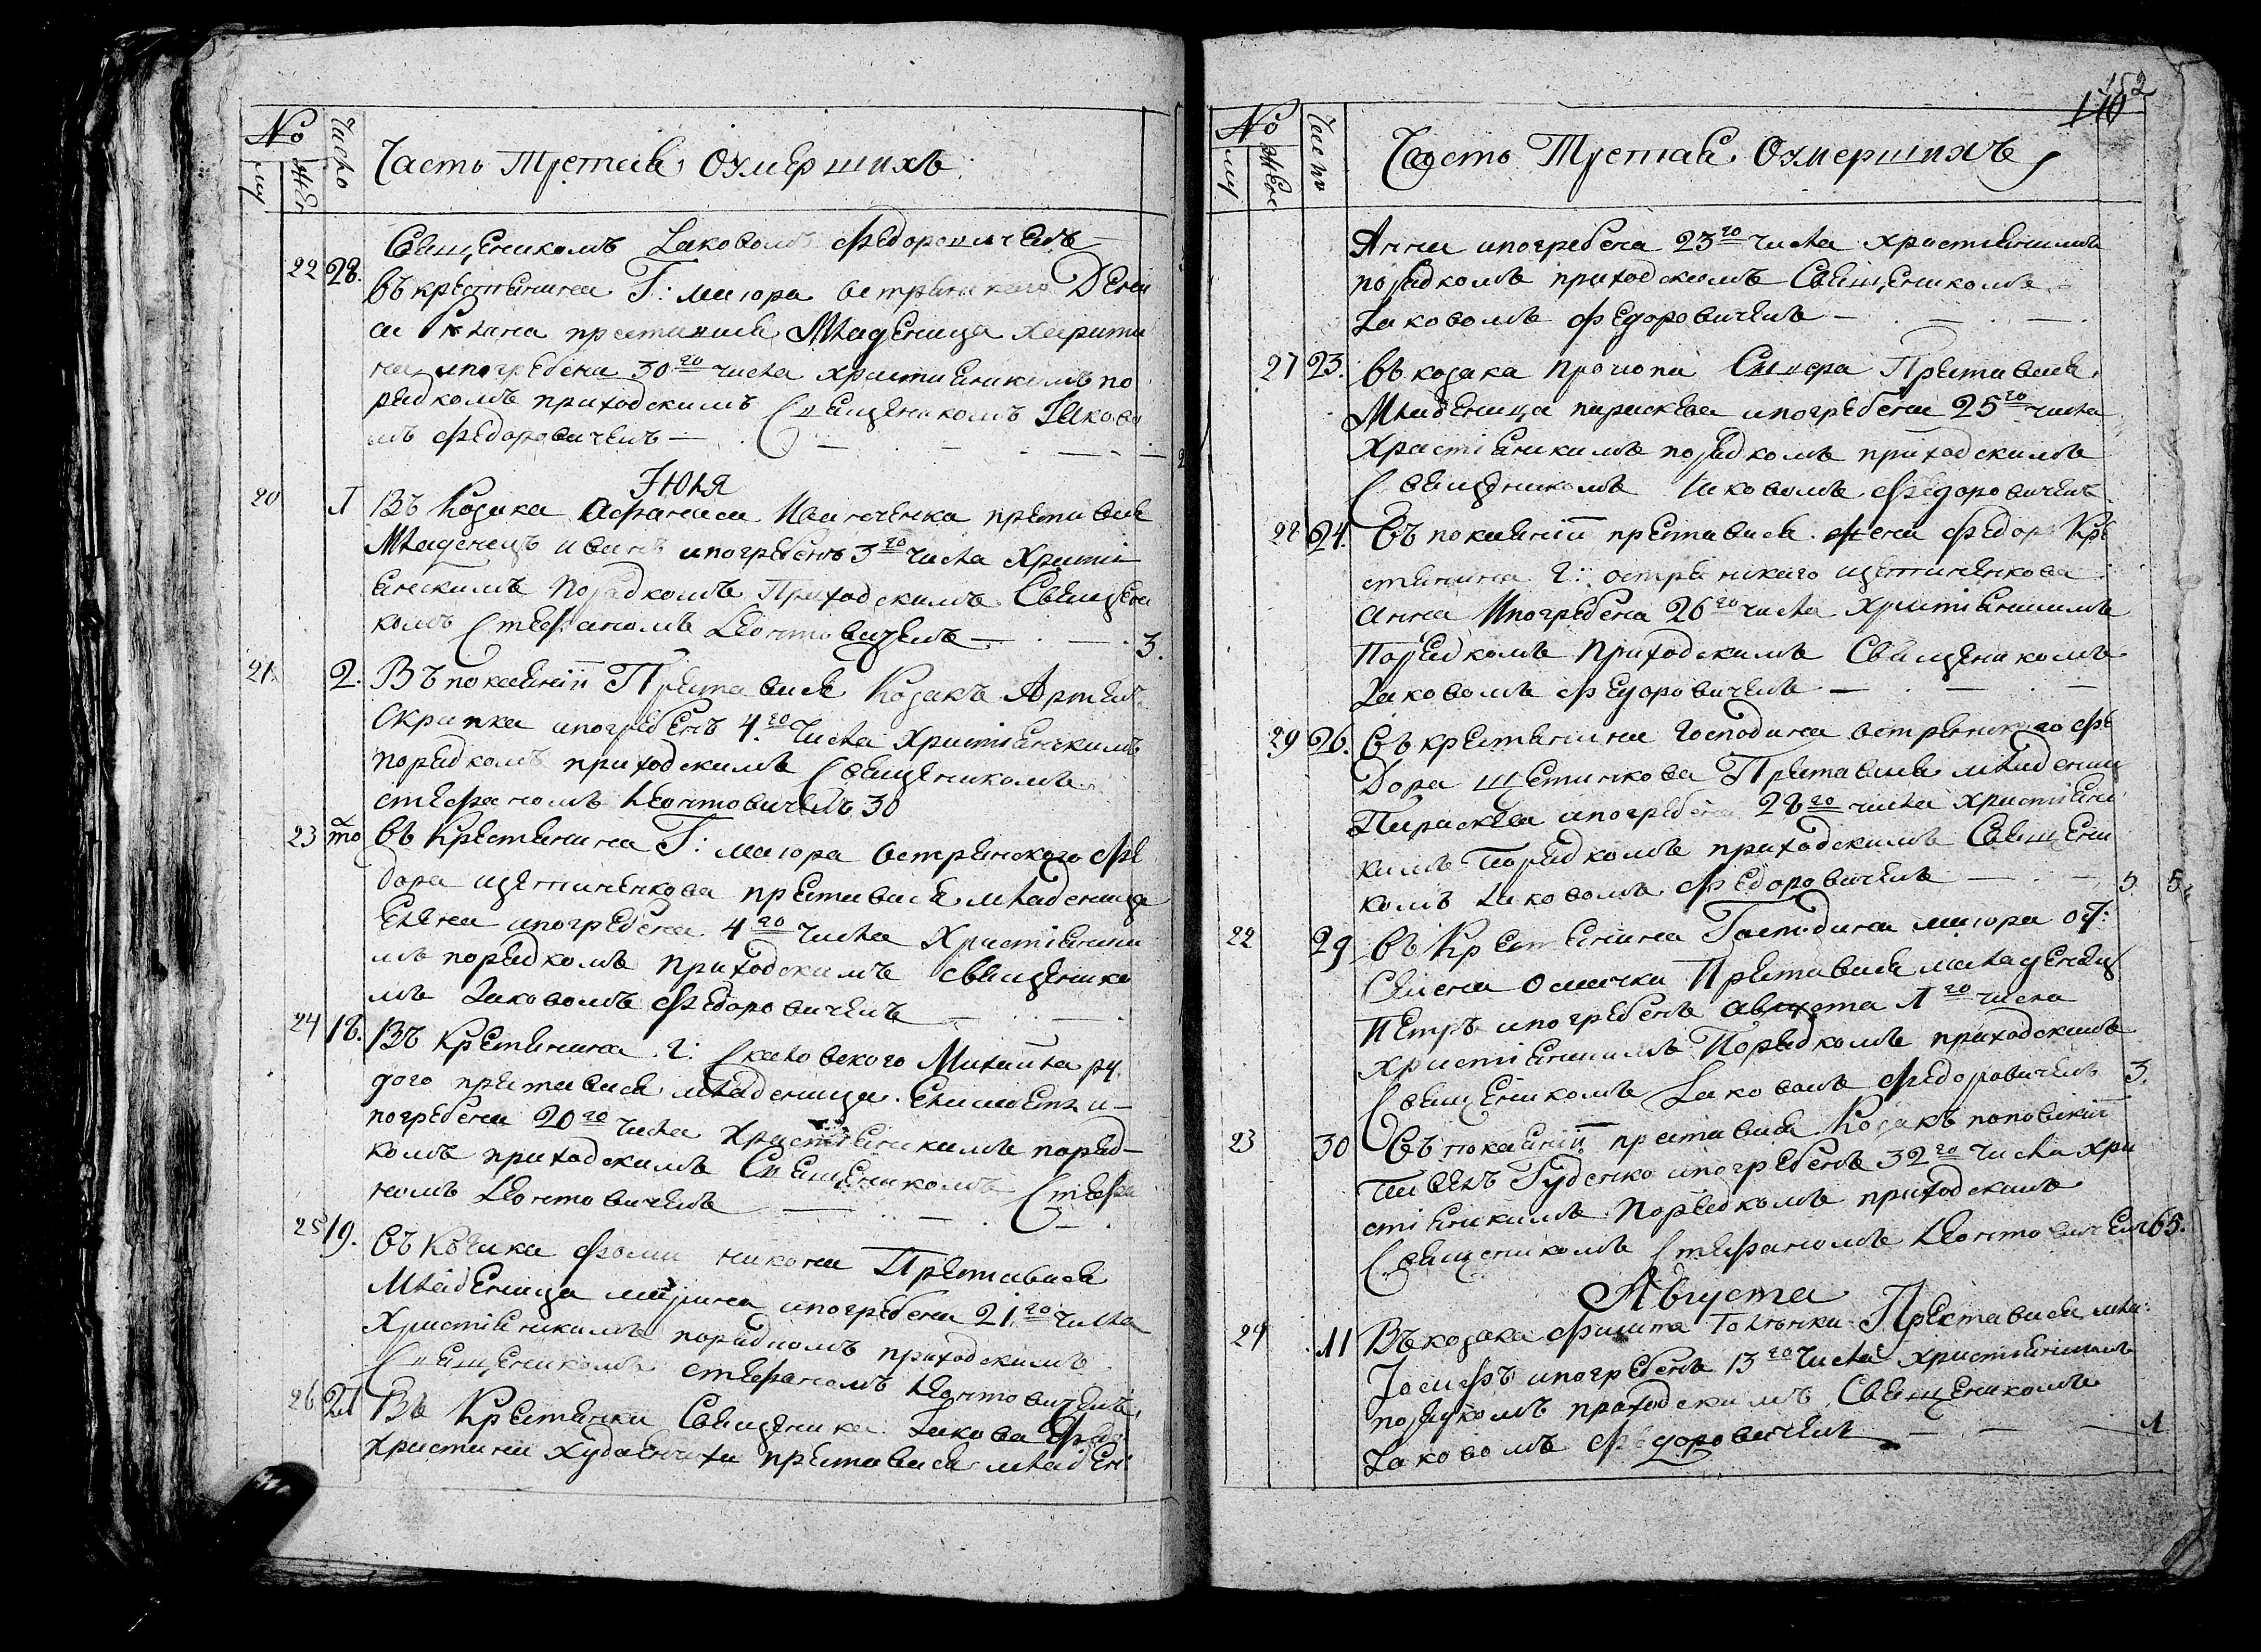 № Число
му Же
Часть Третая Оумершихъ
Священикомъ Іаковомъ Федоровичемъ
22 28. въ крестянина Г: маіора остранского
преставися Младеница Харити
на ипогребена 30го числа христианскимъ по
радкомъ приходскимъ Священикомъ Іаково
мъ Федоровичемъ
Июля
20 1 Въ Козака Афанасия Иванченка преставися
Младенецъ иванъ ипогребенъ 3го числа Христи
анскимъ порадкомъ Приходскимъ Священи
комъ Стефаномъ Леонтовичемъ 3.
21 2. Въ покаяніи Преставися Козакъ Артемъ
Скрипка ипогребенъ 4го Числа христіанскимъ
порадкомъ приходскимъ Священикомъ
стефаномъ Леонтовичемъ 30
23 то въ Крестянина Г: маіора остранского Фе
дора щетиненкова преставися младеница
Елена ипогребена 4го числа Христіански
мъ порадкомъ приходскимъ священико
мъ Іаковомъ Федоровичемъ
24 18. Въ Крестянина Г: Скаловского Михаила ру
дого преставися младеница Елисаветъ и
погребена 20го числа Христіанскимъ порад
комъ приходскимъ Священикомъ Стефа
номъ Леонтовичемъ
25 19. въ Козака Фоми никони Преставися
Младеница марина ипогребена 21го числа
Христіанскимъ порадкомъ приходскимъ
Священикомъ стефаномъ Леонтовичемъ
26 21 Въ Крестянки Священика Іакова Федо
христини преставися младени
152
110
№ Число
му Жено
Часть Третая Оумершихъ
Анна ипогребена 23го числа христианскимъ
порадкомъ приходскимъ Священикомъ
Іаковомъ Федоровичемъ
27 23. въ козака прокопа Преставися
Младеница параскева ипогребена 25го числа
Христіанскимъ порадкомъ приходскимъ
Священикомъ Іаковомъ Федоровичемъ
28 24. Въ покаяніи преставися жена Федора Кре
стянина г: остранского щетиненкова
анна Ипогребена 26го числа христіанскимъ
Порадкомъ Приходскимъ Священикомъ
Іаковомъ Федоровичемъ
29 26. въ крестянина господина остранского Фе
дора щетинкова Преставися младеница
Параскева ипогребена 28го числа христіанс
кимъ Порадкомъ приходскимъ Священи
комъ Іаковомъ Федоровичемъ 5 5
22 29 въ Крестянина Господина маіора ост:
Семена Преставися младенецъ
Петръ ипогребенъ августа 1го числа
христіанскимъ Порадкомъ приходскимъ
Священикомъ Іаковомъ Федоровичемъ 3.
23 30 Въ покаяніи преставися Козакъ поповскій
Павелъ Гуденко ипогребенъ 32го числа хри
стіанскимъ порадкомъ приходскимъ
Священикомъ Стефаномъ Леонтовичемъ 65.
Августа
24 11 Въ козака Филипа Преставися мла:
Іосифъ ипогребенъ 13го числа христианскимъ
порадкомъ приходскимъ Священикомъ
Іаковомъ Федоровичемъ 1